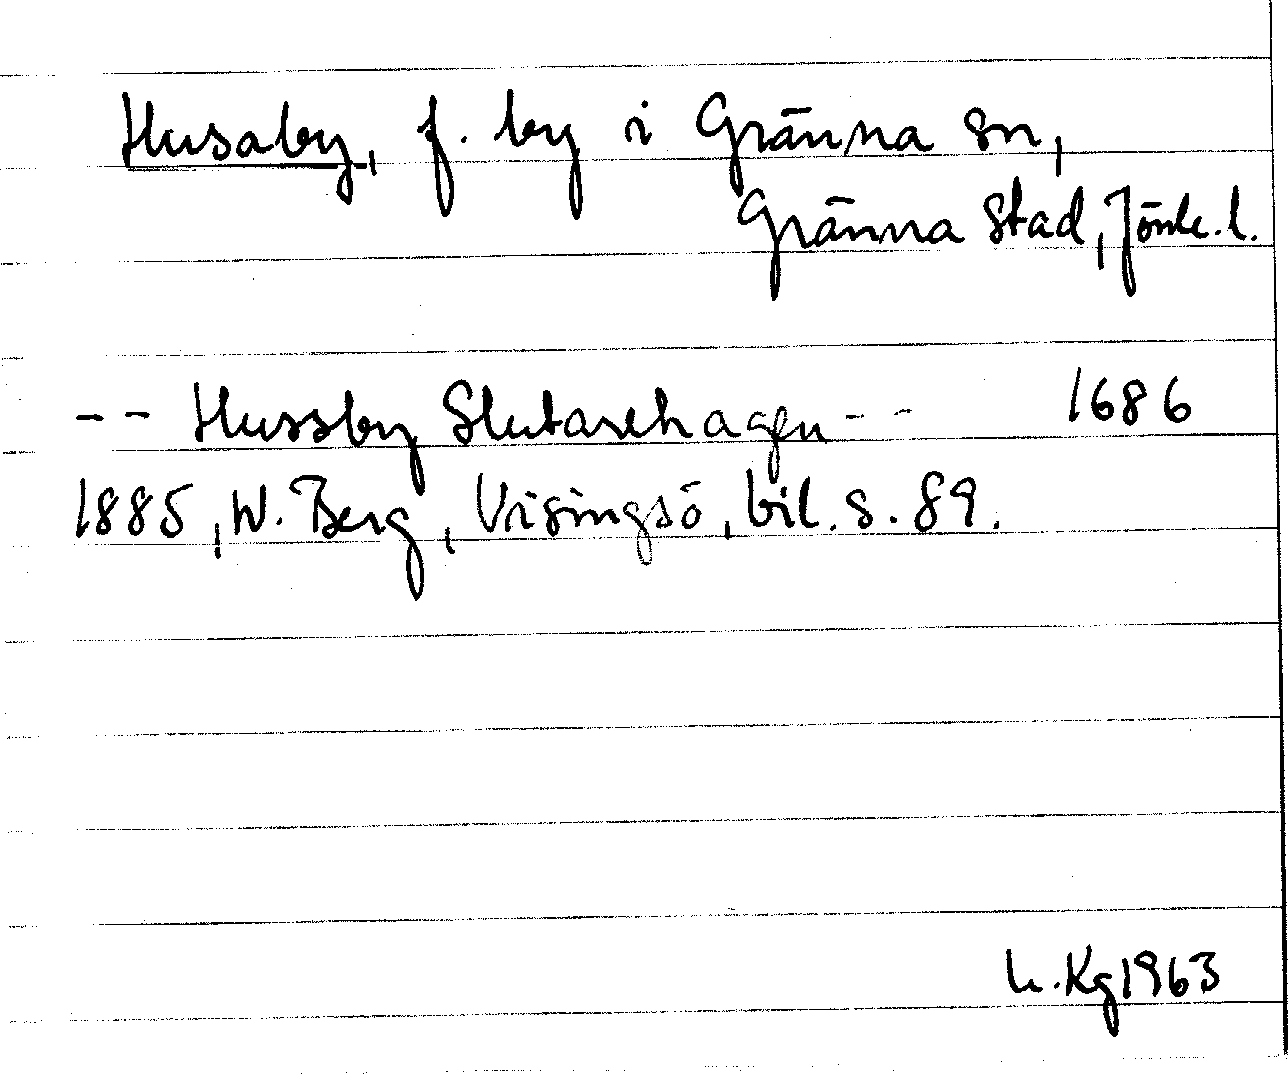 Husaby, f. by i Gränna sn,
Gränna stad, Jönk. l.
-- Hussby Slutarehagen -- 1686
1885, W. Berg, Visingsö, bil. s. 89.
h. Kg 1963